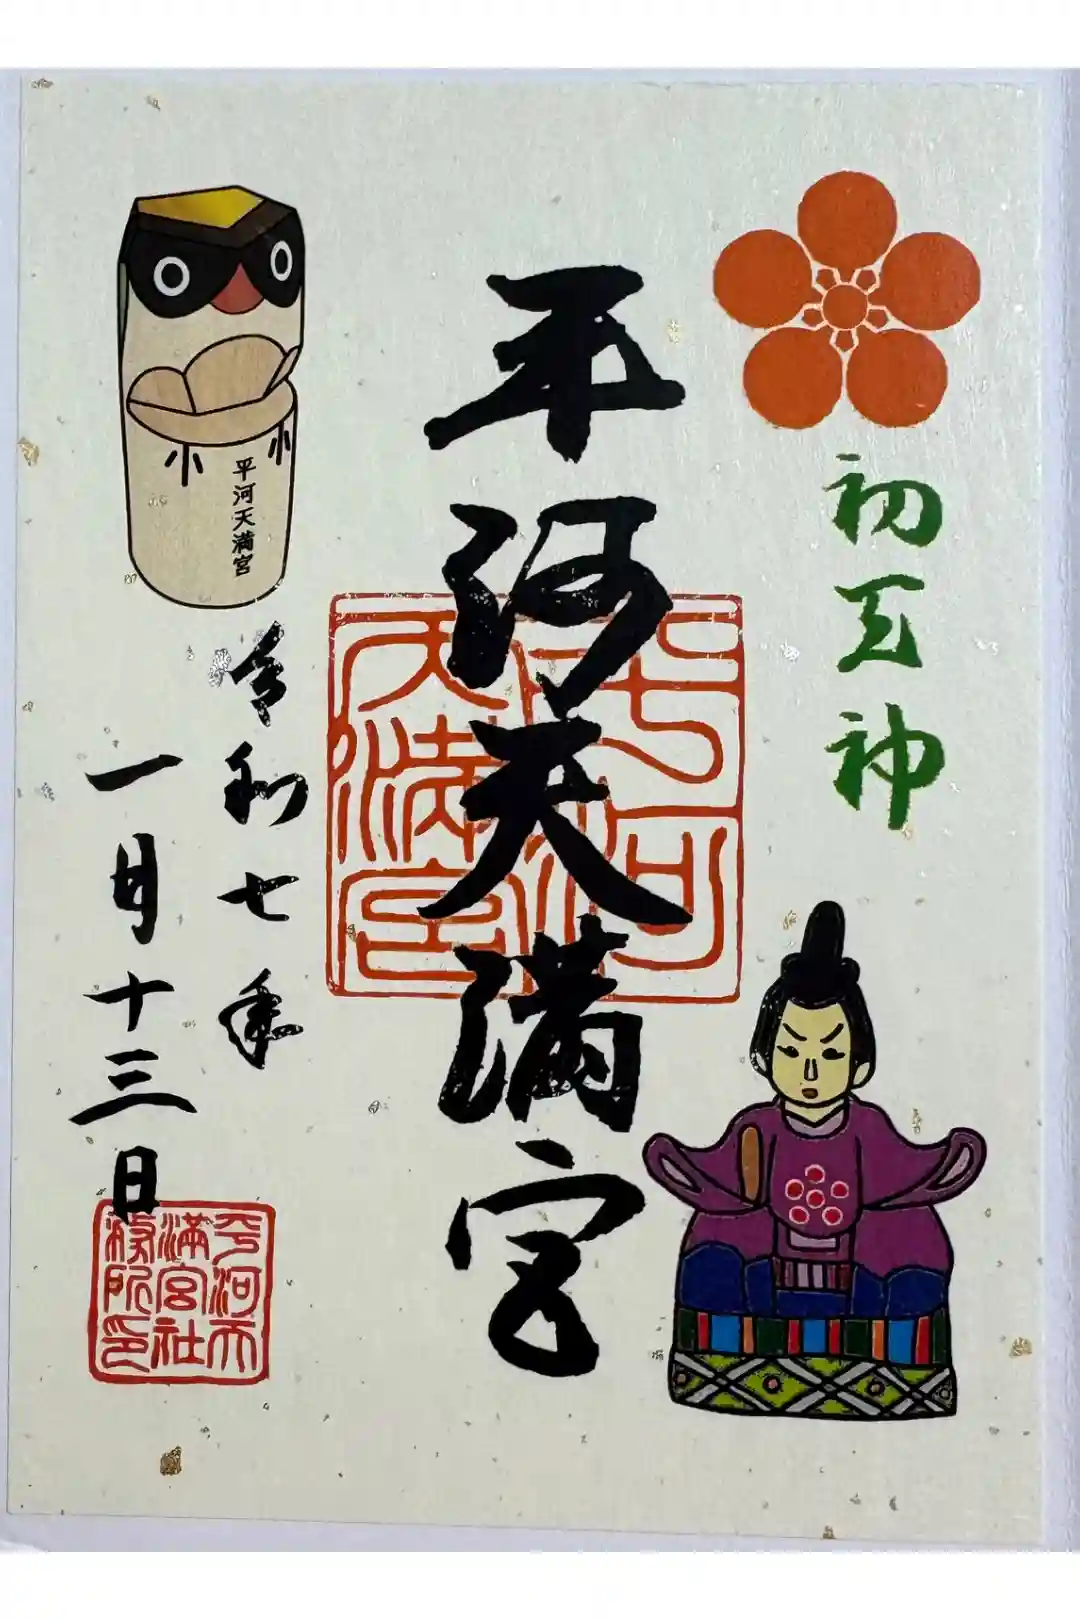 初天神
平河天満宮
平河天満宮
令和七年
一月十三日
平河天満宮
平河天
満宮社
務所印